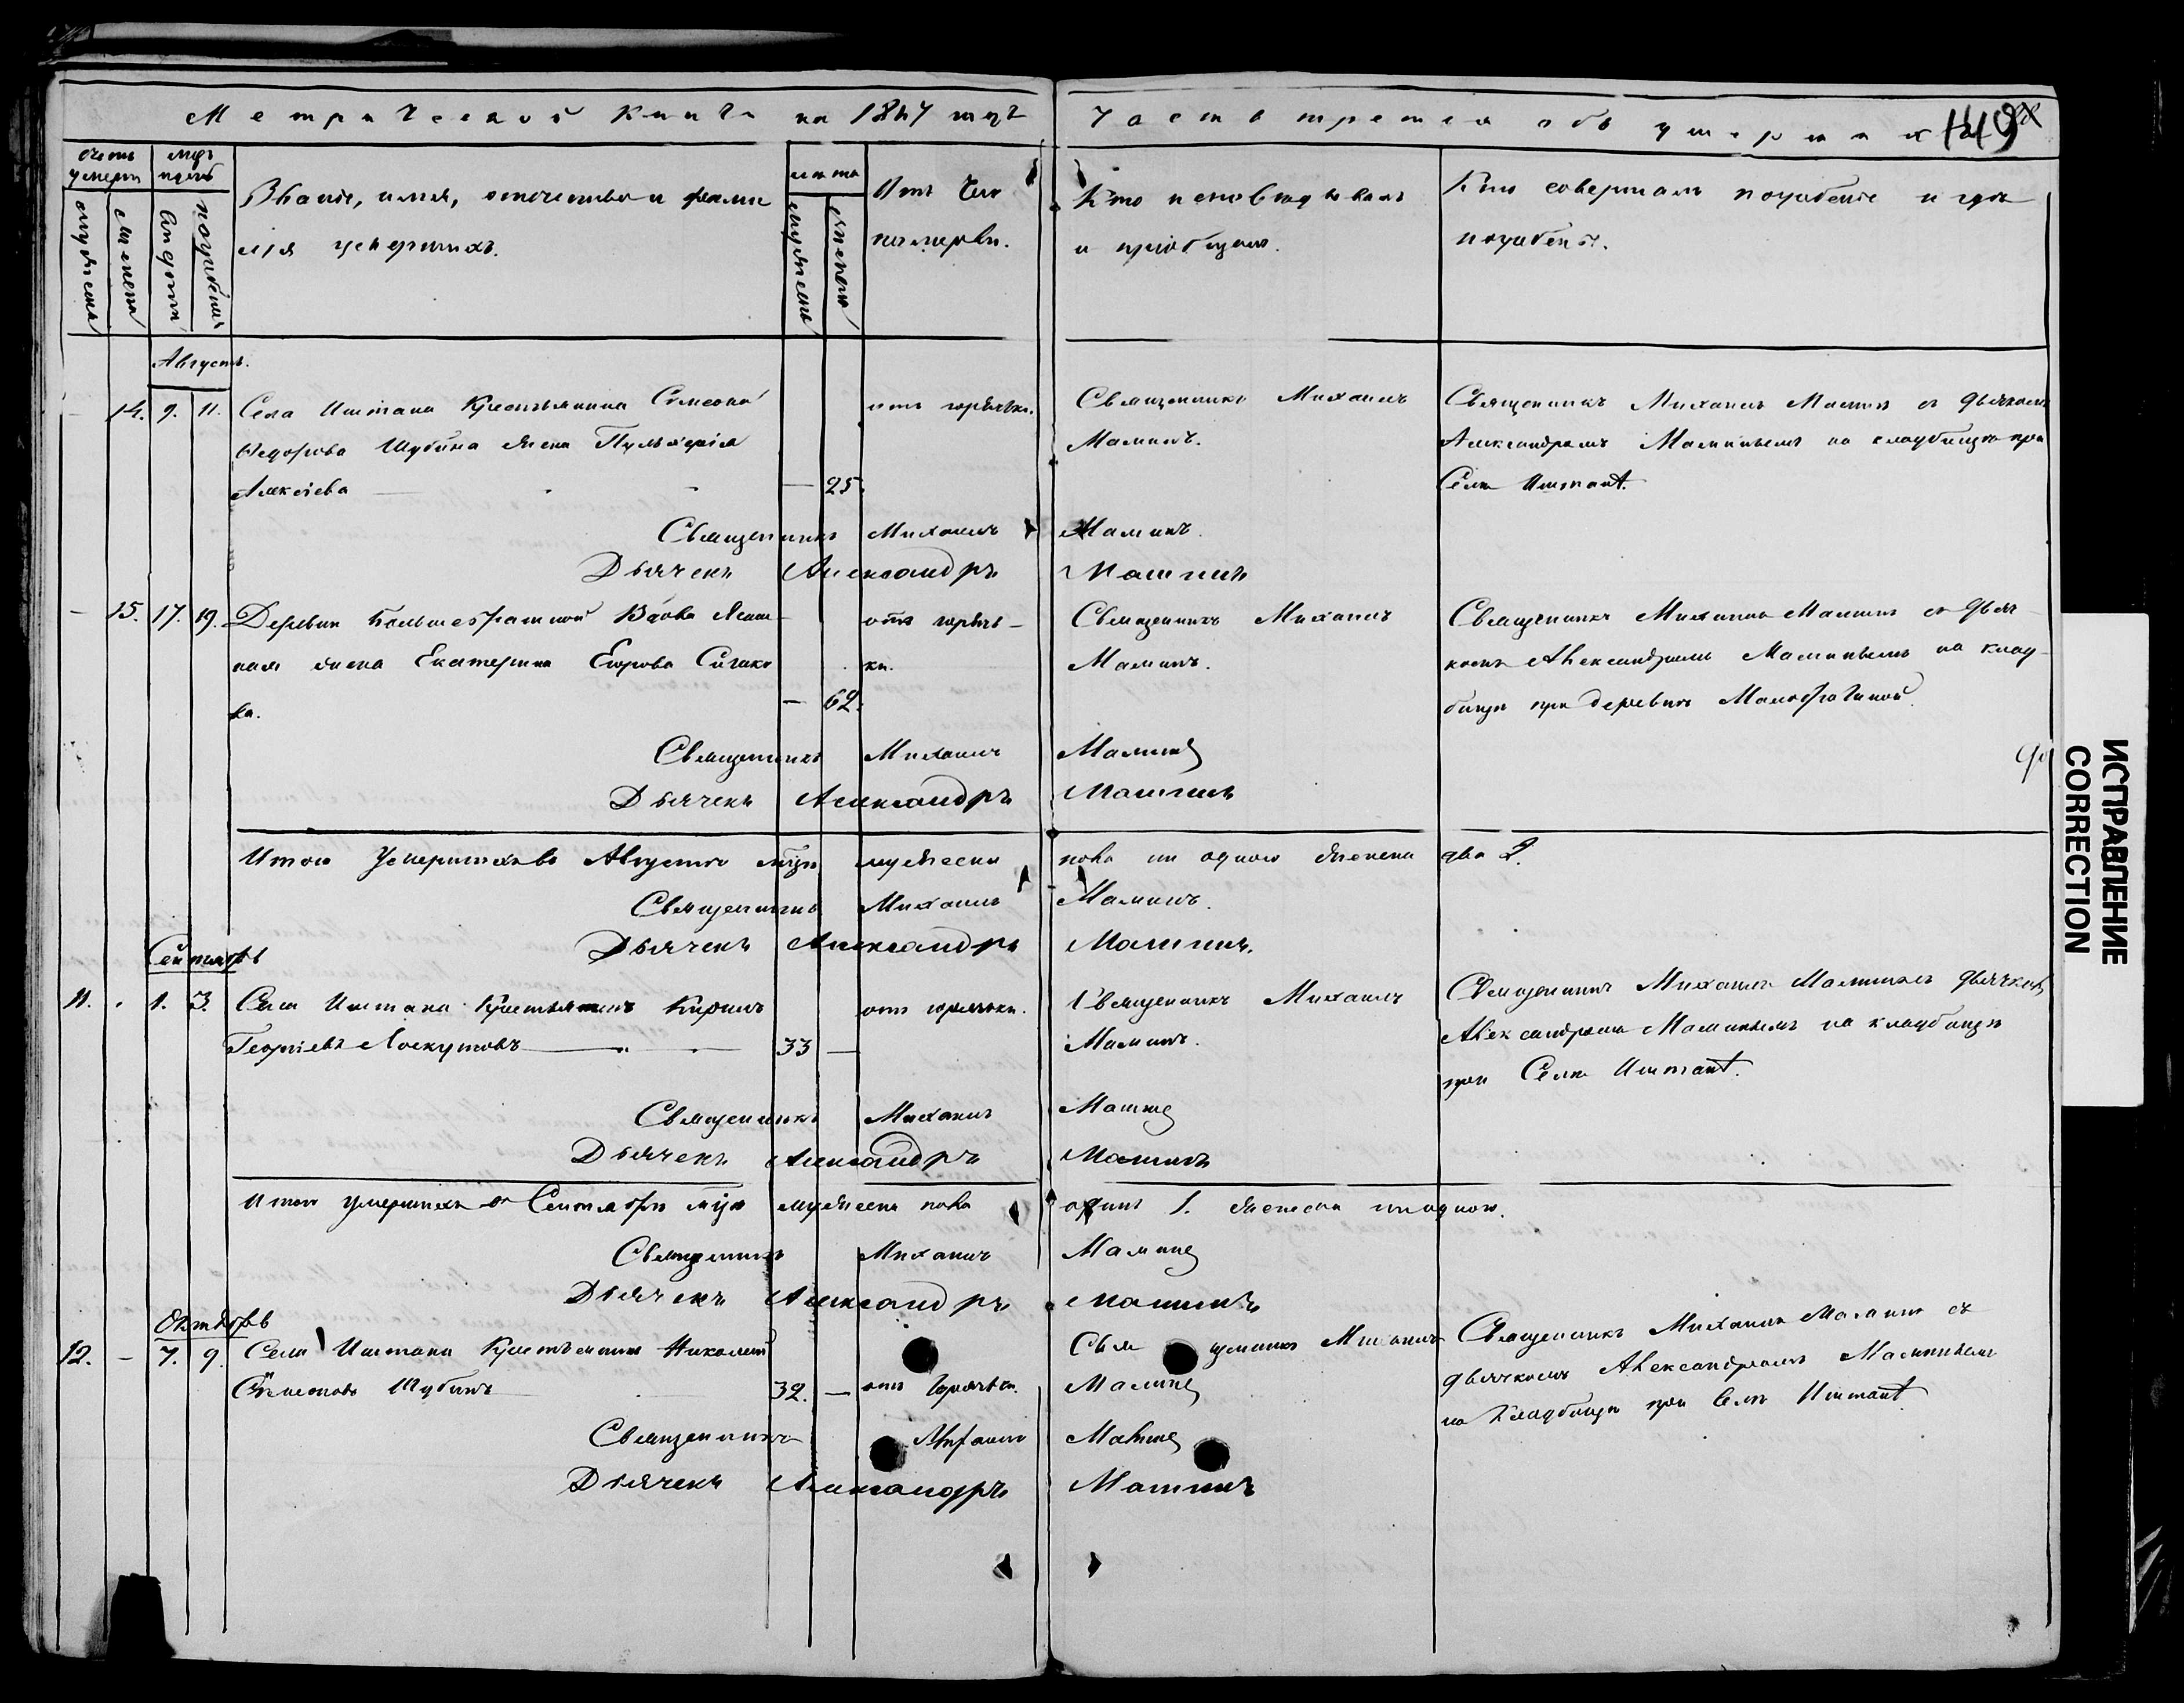 Метрической книги на 1847 годъ Часть третья объ умершихъ 149
Счетъ умерш.
Мцъ и день
мужеска
женска
смерти
погребенія
Званіе, имя, отечество и фамилія умершихъ.
лета
мужеска
женска
Отъ чего померли.
Кто исповѣдывалъ и пріобщалъ.
Кто совершалъ погребеніе и гдѣ погребены.
Августъ.
14. 9. 11. Села Иштана Крестьянина Симеона от горячки. Священникъ Михаилъ Священникъ Михаилъ Маминъ съ дьячкомъ
Ѳедорова Шубина жена Пульхерія Маминъ. Александромъ Маминымъ на кладбищѣ при
Алексіева — 25. Селѣ Иштанѣ.
Священникъ Михаилъ Маминъ.
Дьячекъ Александръ Маминъ
— 15. 17. 19. Деревни Большебрагиной Вдова отъ горяч- Священникъ Михаилъ Священникъ Михаилъ Маминъ съ дьяч-
жена Екатерина Егорова ки. Маминъ. комъ Александромъ Маминымъ на клад-
ва. — 62. бищѣ при деревнѣ Малобрагиной.
Священникъ Михаилъ Маминъ
Дьячекъ Александръ Маминъ
Итого Умершихъ въ Августѣ мцѣ мужеска пола ни одного женска два 2.
Священникъ Михаилъ Маминъ.
Дьячекъ Александръ Маминъ.
Сентябрь
11. . 1. 3. Села Иштана Крестьянинъ Кирилъ отъ горячки. Священникъ Михаилъ Священникъ Михаилъ Маминъ съ дьячкомъ
Георгіевъ Лоскутовъ 33 — Маминъ. Александромъ Маминымъ на кладбищѣ
при Селѣ Иштанѣ.
Священникъ Михаилъ Маминъ
Дьячекъ Александръ Маминъ
Итого умершихъ въ Сентябрѣ мцѣ мужеска пола одинъ 1. женска ни одного.
Священникъ Михаилъ Маминъ
Дьячекъ Александръ Маминъ
Октябрь
12. — 7. 9. Села Иштана Крестьянинъ Николай Священникъ Михаилъ Священникъ Михаилъ Маминъ съ
Шубинъ 32. — отъ горячки. Маминъ дьячкомъ Александромъ Маминымъ
на Кладбищѣ при Селѣ Иштанѣ.
Священникъ Михаилъ Маминъ
Дьячекъ Александръ Маминъ
ИСПРАВЛЕНИЕ
CORRECTION